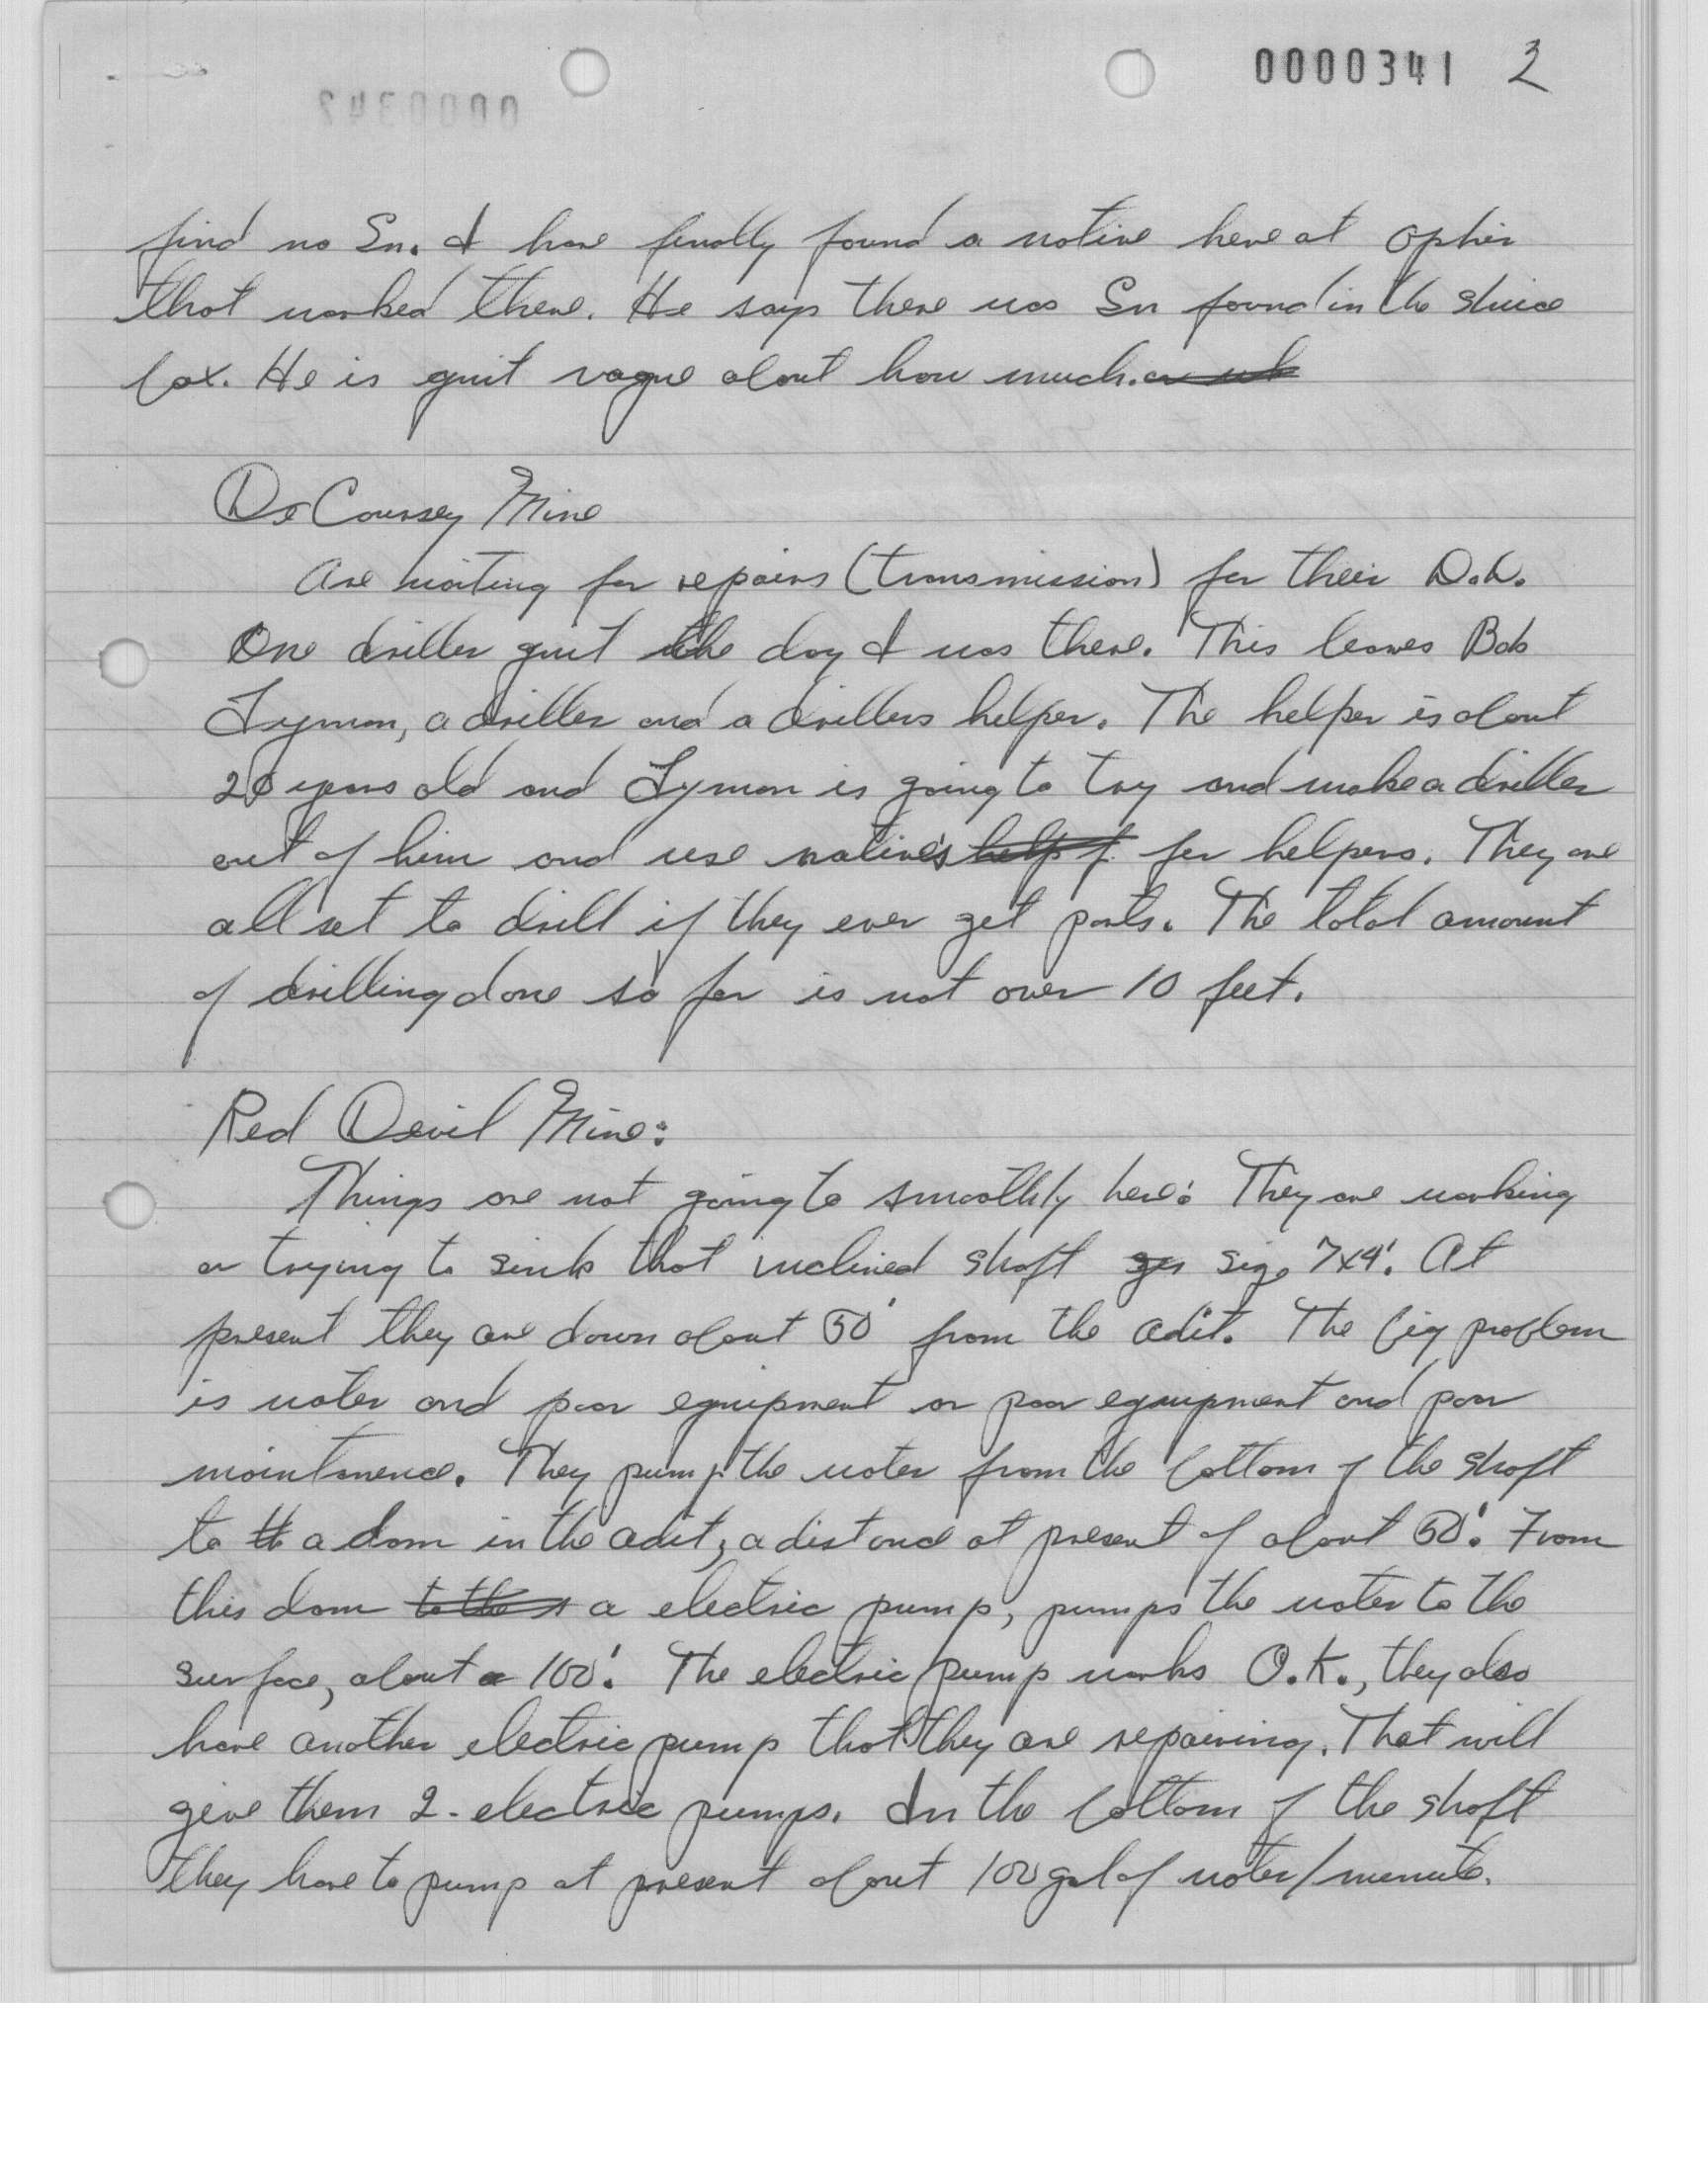 0000341 2
0000342
find no Sn. I have finally found a native here at Ophir
that worked there. He says there was Sn found in the sluice
box. He is quit vague about how much.
De Coursey Mine
Are waiting for repairs (transmission) for their D.D.
One driller quit the day I was there. This leaves Bob
Lyman, a driller and a drillers helper. The helper is about
20 years old and Lyman is going to try and make a driller
out of him and use natives help f for helpers. They are
all set to drill if they ever get parts. The total amount
of drilling done so far is not over 10 feet.
Red Devil Mine:
Things are not going to smoothly here. They are working
or trying to sink that inclined shaft size 7x9'. At
present they are down about 50' from the adit. The big problem
is water and poor equipment or poor equipment and poor
maintanence. They pump the water from the bottom of the shaft
to th a dam in the adit, a distance at present of about 50'. From
this dam to the a electric pump, pumps the water to the
surface, about a 100'. The electric pump works O.K., they also
have another electric pump that they are repairing. That will
give them 2-electric pumps. In the bottom of the shaft
they have to pump at present about 100 gal of water/minute.